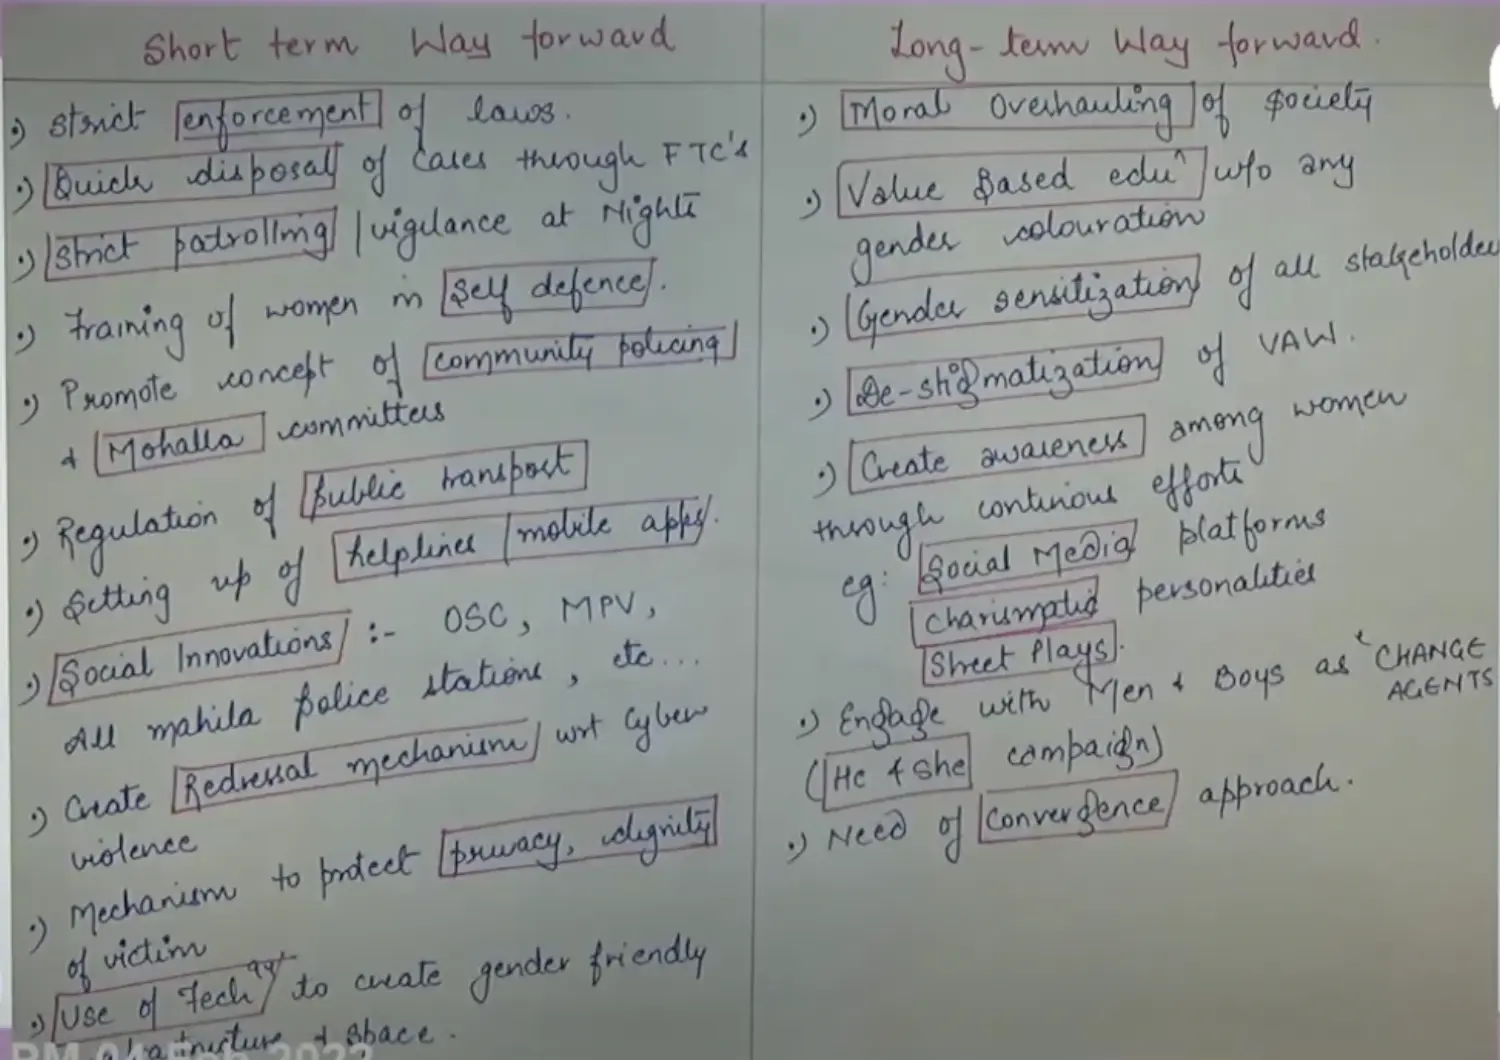 Short term Way forward
•) Strict enforcement of laws.
•) Quick disposal of cases through FTC's
•) Strict patrolling / vigilance at Night
•) Training of women in self defence.
•) Promote concept of community policing
& Mohalla committees
•) Regulation of public transport
•) Setting up of helplines / mobile apps.
•) Social Innovations :- OSC, MPV,
All mahila police stations, etc...
•) Create Redressal mechanism wrt Cyber
violence
•) Mechanism to protect privacy, dignity
of victim
•) Use of Tech to create gender friendly
& space.
Long-term Way forward.
•) Moral Overhauling of society
•) Value Based edu^n w/o any
gender colouration
•) Gender sensitization of all stakeholder
•) De-stigmatization of VAW.
•) Create awareness among women
through continous efforts
eg: Social Media platforms
Charismatic personalities
Street Plays.
•) Engage with Men & Boys as 'CHANGE
AGENTS
(He 4 she campaign)
•) Need of Convergence approach.